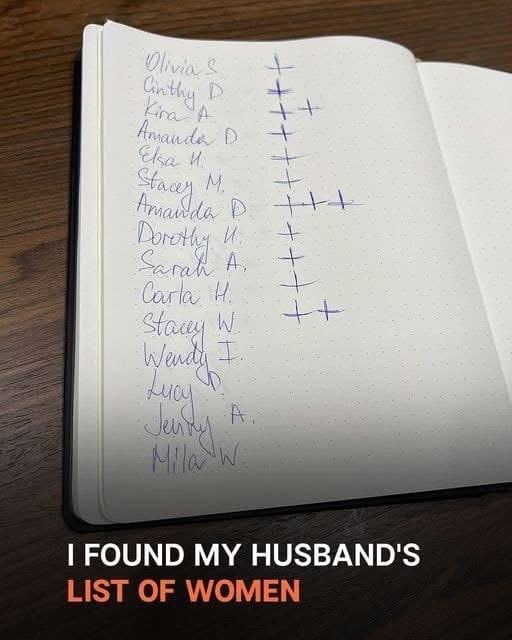 Olivia S +
Cinthy D +
Kira A. + +
Amanda D +
Elsa H. +
Stacey M. +
Amanda D. + + +
Dorothy H. +
Sarah A. +
Carla H. +
Stacey W + +
Wendy I.
Lucy D.
Jenny A.
Mila W.
I FOUND MY HUSBAND'S
LIST OF WOMEN